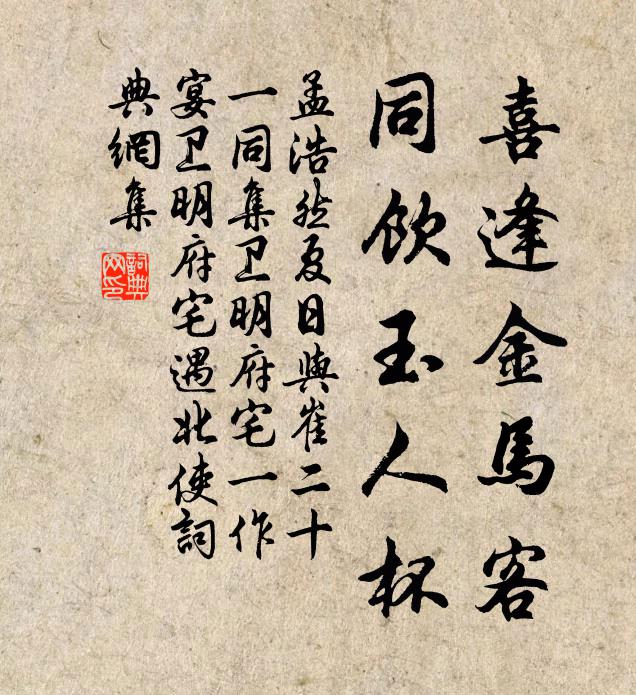 喜逢金馬客
同飲玉人杯
孟浩然夏日與崔二十
一同集卫明府宅一作
宴卫明府宅遇北使詞
典網集
詞典
网印